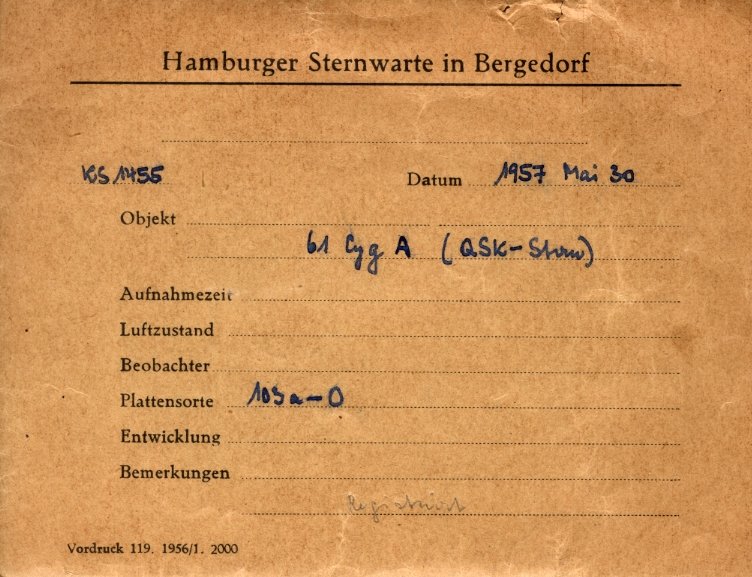 Hamburger Sternwarte in Bergedorf
KS 1455 Datum 1957 Mai 30
Objekt
61 Cyg A (QSK-Stern)
Aufnahmezeit
Luftzustand
Beobachter
Plattensorte 103a-O
Entwicklung
Bemerkungen
Registriert
Vordruck 119. 1956/1. 2000